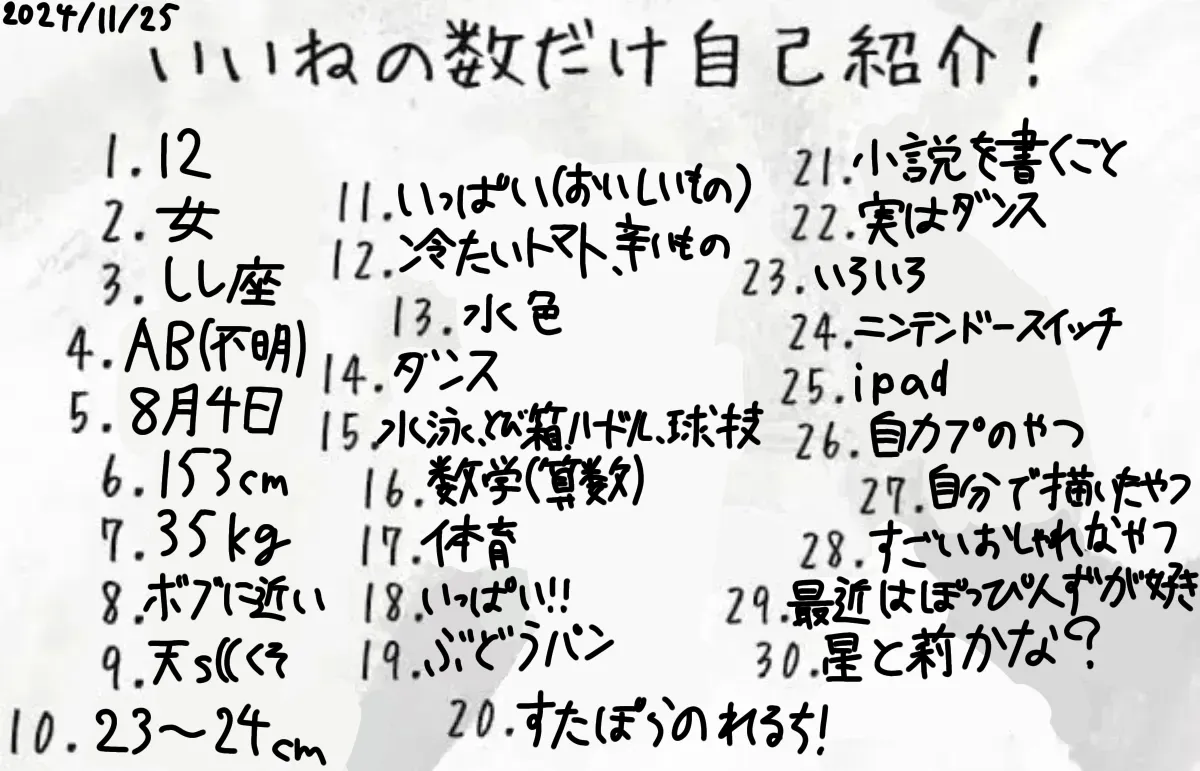 2024/11/25
いいねの数だけ自己紹介!
1.12
2.女
3.しし座
4.AB(不明)
5.8月4日
6.153cm
7.35kg
8.ボブに近い
9.天s((くそ
10.23〜24cm
11.いっぱい(おいしいもの)
12.冷たいトマト、辛いもの
13.水色
14.ダンス
15.水泳、とび箱、ハードル、球技
16.数学(算数)
17.体育
18.いっぱい!!
19.ぶどうパン
20.すたぽらのれるち!
21.小説を書くこと
22.実はダンス
23.いろいろ
24.ニンテンドースイッチ
25.ipad
26.自カプのやつ
27.自分で描いたやつ
28.すごいおしゃれなやつ
29.最近はぽっぴんずが好き
30.星と莉かな?